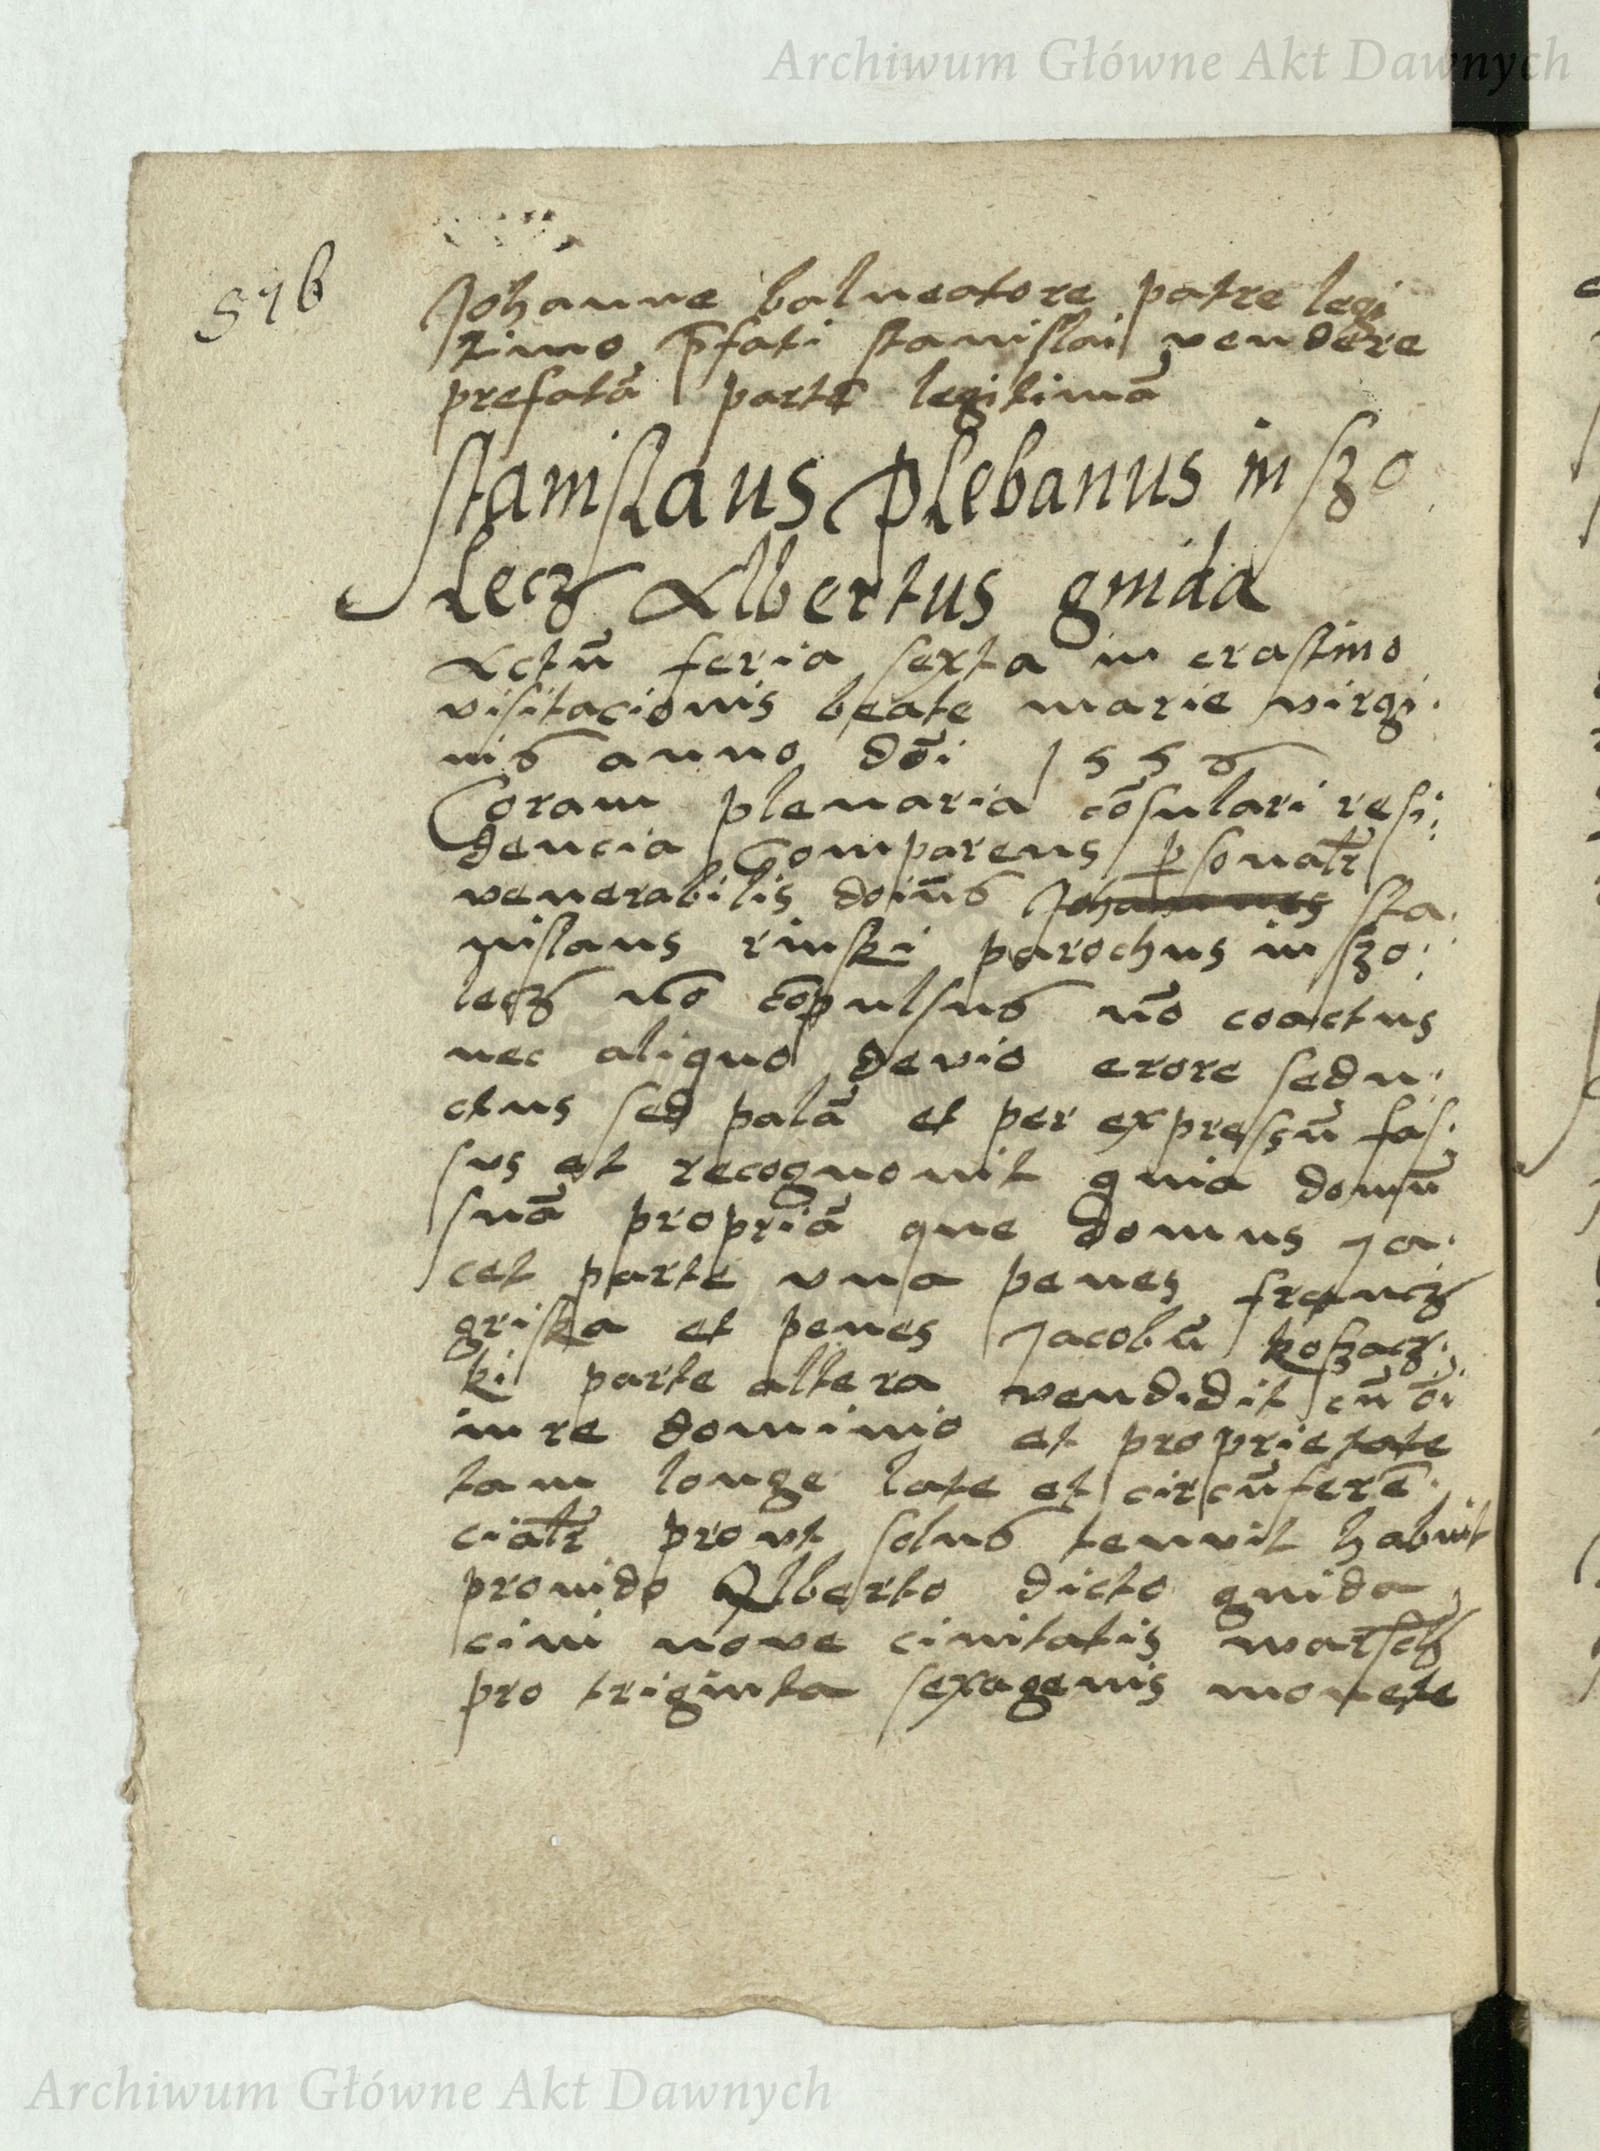 Archiwum Główne Akt Dawnych
576
Johanne balneatore patre legi
timo p̄fati stanislai vendere
prefatā partē legitimā
stanislaus plebanus in szo
lecz Albertus gnida
Actū feria sexta in crastino
visitacionis beate marie virgi.
nis anno dōi 1556
Coram plenaria cōsulari resi:
dencia Comparens psonalr̄
venerabilis doīus Johannes sta.
nislaus rinski parochus in szo:
lecz nō cōpulsus nō coactus
nec aliquo devio erore sedu.
ctus sed palā et per expressū fas.
sus est recognouit quia domū
suā propriā que domus Ja.
cet parte vna penes francz
griska et penes Jacobū koszacz.
ki parte altera vendidit cū ōi
iure dominio et proprietate
tam longe late et circūferē.
cialr̄ prout solus tenuit habuit
prouido Alberto dicto gnida
ciui noue ciuitatis warsch
pro triginta sexagenis monete
Archiwum Główne Akt Dawnych